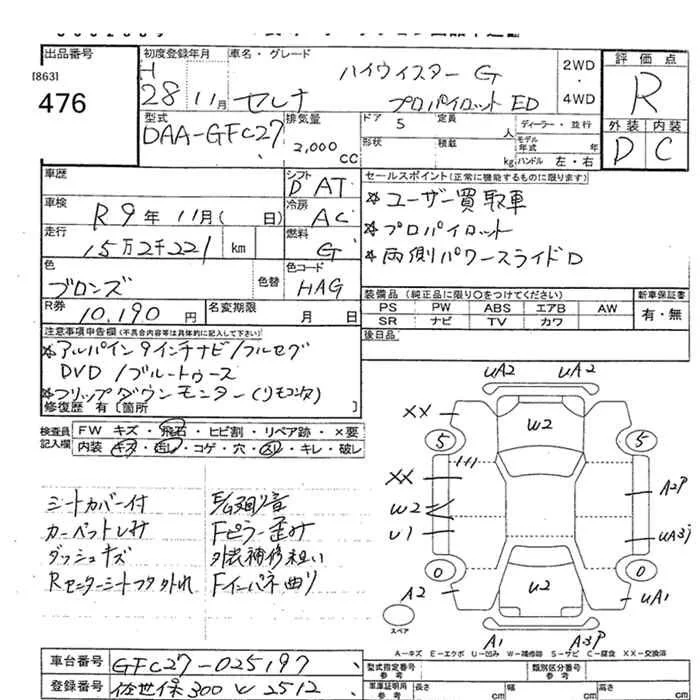 出品番号
[863]
476
初度登録年月
H
28 11月
車名・グレード
セレナ
ハイウィスター G
プロパイロット ED
2WD
・
4WD
評価点
R
外装 内装
D C
型式
DAA-GFC27
排気量
2,000
CC
ドア 5
定員
人
ディーラー・並行
形状
積載
kg
モデル年式 年
ハンドル 左・右
車歴
シフト
D AT
車検
R9年11月( 日)
冷房
AC
走行
15万2千221 km
燃料
G
色
ブロンズ
色替
色コード
HAG
R券
10,190 円
名変期限
月 日
セールスポイント(正常に機能するものに限ります)
* ユーザー買取車
* プロパイロット
* 両側パワースライドD
装備品(純正品に限り○をつけてください)
PS PW ABS エアB AW
SR ナビ TV カワ
新車保証書
有・無
後日品
注意事項申告欄(不具合内容等は具体的に記入して下さい)
* アルパイン9インチナビ/フルセグ
DVD/ブルートゥース
* フリップダウンモニター(リモコンX)
修復歴 有〔箇所 〕
検査員
記入欄
FW キズ・飛石・ヒビ割・リペア跡・×要
内装 キズ・汚レ・コゲ・穴・スレ・キレ・破レ
シートカバー付
カーペットしみ
ダッシュキズ
Rセンターシートフタ外れ
Fピラー歪み
外装補修粗い
Fインパネ曲り
UA2 UA2
XX
W2
5 5
XX
A2P
W2
U1
UA3j
0 0
A2
W2
UA1
A1 A3P
スペア
A-キズ E-エクボ U-凹み W-補修跡 S-サビ C-腐食 XX-交換済
車台番号
GFC27-025197
登録番号
佐世保 300 ハ 2512
型式指定番号
参考
類別区分番号
参考
車庫証明用
参考
長さ
幅
高さ